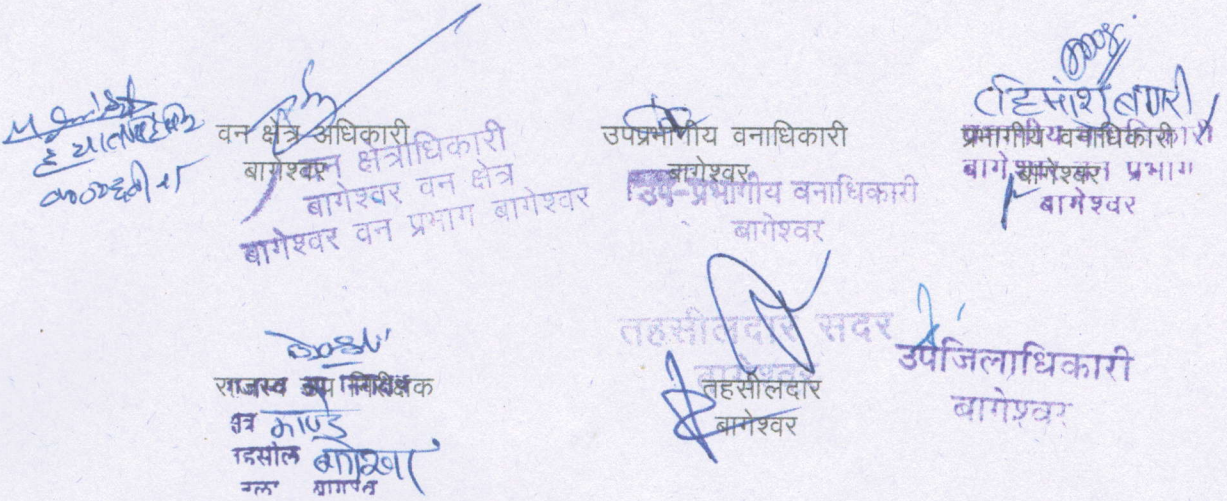 वन क्षेत्र अधिकारी
बागेश्वर
वन क्षेत्राधिकारी
बागेश्वर वन क्षेत्र
बागेश्वर वन प्रभाग बागेश्वर
उपप्रभागीय वनाधिकारी
बागेश्वर
उप-प्रभागीय वनाधिकारी
बागेश्वर
प्रभागीय वनाधिकारी
बागेश्वर
प्रभागीय वनाधिकारी
बागेश्वर वन प्रभाग
बागेश्वर
राजस्व उप निरीक्षक
तहसील
तहसीलदार सदर
बागेश्वर
तहसीलदार
बागेश्वर
उपजिलाधिकारी
बागेश्वर